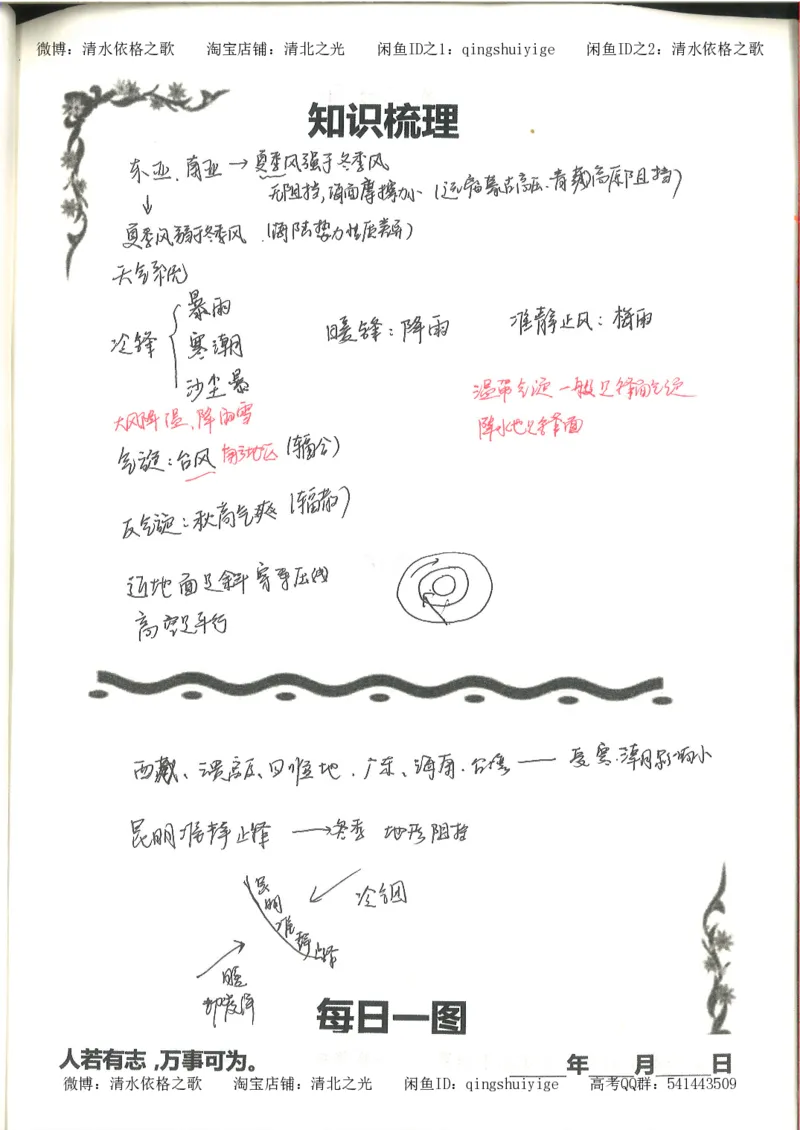 微博：清水依格之歌 淘宝店铺：清北之光 闲鱼ID之1：qingshuiyige 闲鱼ID之2：清水依格之歌
知识梳理
东亚、南亚 → 夏季风强于冬季风
无阻挡，海面摩擦力小（远离蒙古高压、青藏高原阻挡）
↓
夏季风弱于冬季风（海陆热力性质差异）
天气系统
冷锋 { 暴雨
寒潮
沙尘暴
暖锋：降雨 准静止风：梅雨
大风降温、降雨雪
温带气旋一般是锋面气旋
降水也是锋面
气旋：台风 南方地区（辐合）
反气旋：秋高气爽（辐散）
近地面是斜穿等压线
高空是平行
西藏、滇南、四川盆地、广东、海南、台湾 — 受寒潮影响小
昆明准静止锋 → 冬季 地形阻挡
昆明准静止锋
冷气团
暖
每日一图
人若有志，万事可为。 年 月 日
微博：清水依格之歌 淘宝店铺：清北之光 闲鱼ID：qingshuiyige 高考QQ群：541443509